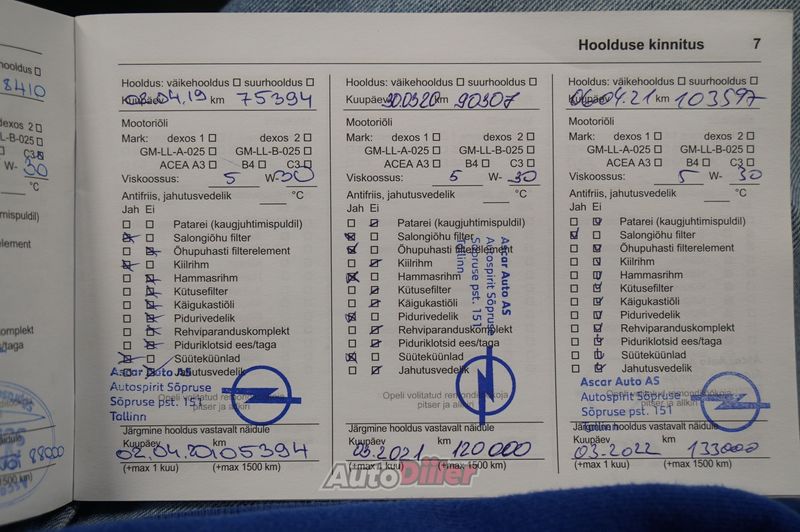 Hoolduse kinnitus 7
hooldus
8410
dexos 2
LL-B-025
C3
W- 30
°C
timispuldil)
element
komplekt
s/taga
näidule
km
88000
1500 km)
Hooldus: väikehooldus suurhooldus
Kuupäev 02.04.19 km 75394
Mootoriõli
Mark: dexos 1 dexos 2
GM-LL-A-025 GM-LL-B-025
ACEA A3 B4 C3
Viskoossus: 5 W- 30
Antifriis, jahutusvedelik °C
Jah Ei
Patarei (kaugjuhtimispuldil)
Salongiõhu filter
Õhupuhasti filterelement
Kiilrihm
Hammasrihm
Kütusefilter
Käigukastiõli
Pidurivedelik
Rehviparanduskomplekt
Piduriklotsid ees/taga
Süüteküünlad
Jahutusvedelik
Ascar Auto AS
Autospirit Sõpruse
Sõpruse pst. 151
Tallinn
Opeli volitatud remonditöökoja
pitser ja allkiri
Järgmine hooldus vastavalt näidule
Kuupäev km
02.04.20 105394
(+max 1 kuu) (+max 1500 km)
Hooldus: väikehooldus suurhooldus
Kuupäev km 90307
Mootoriõli
Mark: dexos 1 dexos 2
GM-LL-A-025 GM-LL-B-025
ACEA A3 B4 C3
Viskoossus: 5 W- 30
Antifriis, jahutusvedelik °C
Jah Ei
Patarei (kaugjuhtimispuldil)
Salongiõhu filter
Õhupuhasti filterelement
Kiilrihm
Hammasrihm
Kütusefilter
Käigukastiõli
Pidurivedelik
Rehviparanduskomplekt
Piduriklotsid ees/taga
Süüteküünlad
Jahutusvedelik
Ascar Auto AS
Autospirit Sõpruse
Sõpruse pst. 151
Tallinn
Opeli volitatud remonditöökoja
pitser ja allkiri
Järgmine hooldus vastavalt näidule
Kuupäev km
03.2021 120000
(+max 1 kuu) (+max 1500 km)
Hooldus: väikehooldus suurhooldus
Kuupäev 06.04.21 km 103597
Mootoriõli
Mark: dexos 1 dexos 2
GM-LL-A-025 GM-LL-B-025
ACEA A3 B4 C3
Viskoossus: 5 W- 30
Antifriis, jahutusvedelik °C
Jah Ei
Patarei (kaugjuhtimispuldil)
Salongiõhu filter
Õhupuhasti filterelement
Kiilrihm
Hammasrihm
Kütusefilter
Käigukastiõli
Pidurivedelik
Rehviparanduskomplekt
Piduriklotsid ees/taga
Süüteküünlad
Jahutusvedelik
Ascar Auto AS
Autospirit Sõpruse
Sõpruse pst. 151
Tallinn
Opeli volitatud remonditöökoja
pitser ja allkiri
Järgmine hooldus vastavalt näidule
Kuupäev km
03-2022 133000
(+max 1 kuu) (+max 1500 km)
AutoDiiler